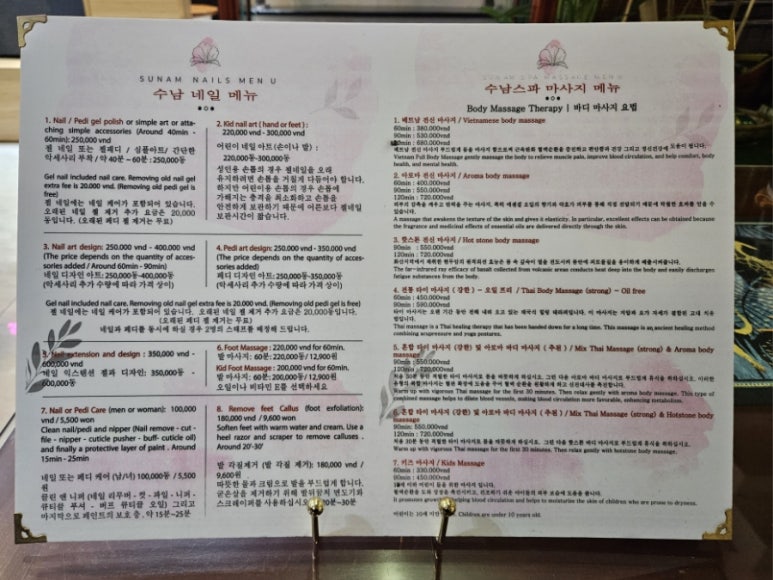 SUNAM NAILS MENU
수남 네일 메뉴
1. Nail / Pedi gel polish or simple art or atta-
ching simple accessories (Around 40min -
60min): 250,000 vnd
젤 네일 또는 젤페디 / 심플아트/ 간단한
악세사리 부착 / 약 40분 ~ 60분 : 250,000동
Gel nail included nail care. Removing old nail gel
extra fee is 20.000 vnd. (Removing old pedi gel is
free)
젤 네일에는 네일 케어가 포함되어 있습니다.
오래된 네일 젤 제거 추가 요금은 20,000
동입니다. (오래된 페디 젤 제거는 무료)
2. Kid nail art ( hand or feet ) :
220,000 vnd - 300,000 vnd
어린이 네일 아트(손이나 발) :
220,000동~300,000동
성인용 손톱의 경우 젤네일을 오래
유지하려면 손톱을 거칠게 다듬어야 합니다.
하지만 어린이용 손톱의 경우 손톱에
가해지는 충격을 최소화하고 손톱을
안전하게 보관하기 때문에 어른보다 젤네일
보관시간이 짧습니다.
3. Nail art design: 250,000 vnd - 400,000 vnd
(The price depends on the quantity of acces-
sories added / Around 60min - 90min)
네일 디자인 아트: 250,000동~400,000동
(악세사리 추가 수량에 따라 가격 상이)
4. Pedi art design: 250,000 vnd - 350,000 vnd
(The price depends on the quantity of acces-
sories added)
페디 디자인 아트: 250,000동~350,000동
(악세사리 추가 수량에 따라 가격 상이)
Gel nail included nail care. Removing old nail gel extra fee is 20.000 vnd. (Removing old pedi gel is free)
젤 네일에는 네일 케어가 포함되어 있습니다. 오래된 네일 젤 제거 추가 요금은 20,000동입니다.
(오래된 페디 젤 제거는 무료)
네일과 페디를 동시에 하실 경우 2명의 스태프를 배정해 드립니다.
5. Nail extension and design : 350,000 vnd -
600,000 vnd
네일 익스텐션 젤과 디자인: 350,000동 -
600,000동
6. Foot Massage : 220,000 vnd for 60min.
발 마사지: 60분: 220,000동/ 12,900원
Kid Foot Massage : 200,000 vnd for 60min.
발 마사지: 60분: 200,000동/ 12,000원
오일이나 비타민 E를 선택하세요
7. Nail or Pedi Care (men or woman): 100,000
vnd / 5,500 won
Clean nail/pedi and nipper (Nail remove - cut
- file - nipper - cuticle pusher - buff- cuticle oil)
and finally a protective layer of paint . Around
15min - 25min
네일 또는 페디 케어 (남/녀) 100,000동 / 5,500
원
클린 앤 니퍼 (네일 리무버 - 컷 - 파일 - 니퍼 -
큐티클 푸셔 - 버프 큐티클 오일) 그리고
마지막으로 페인트의 보호 층. 약 15분~25분
8. Remove feet Callus (foot exfoliation):
180,000 vnd / 9,600 won
Soften feet with warm water and cream. Use a
heel razor and scraper to remove calluses .
Around 20'-30'
발 각질제거 (발 각질 제거): 180,000 vnd /
9,600원
따뜻한 물과 크림으로 발을 부드럽게 합니다.
굳은살을 제거하기 위해 발뒤꿈치 면도기와
스크레이퍼를 사용하십시오. 20분~30분
SUNAM SPA MASSAGE MENU
수남스파 마사지 메뉴
Body Massage Therapy | 바디 마사지 요법
1. 베트남 전신 마사지 / Vietnamese body massage
60min : 380.000vnd
90min : 530.000vnd
120min : 680.000vnd
Vietnam Full Body Massage gently massage the body to relieve muscle pain, improve blood circulation, and help comfort, body
health, and mental health.
2. 아로마 전신 마사지 / Aroma body massage
60min : 400.000vnd
90min : 550.000vnd
120min : 720.000vnd
A massage that awakens the texture of the skin and gives it elasticity. In particular, excellent effects can be obtained because
the fragrance and medicinal effects of essential oils are delivered directly through the skin.
3. 핫스톤 전신 마사지 / Hot stone body massage
90min : 550.000vnd
120min : 720.000vnd
The far-infrared ray efficacy of basalt collected from volcanic areas conducts heat deep into the body and easily discharges
fatigue substances from the body.
4. 전통 타이 마사지 ( 강한 ) - 오일 프리 / Thai Body Massage (strong) – Oil free
60min : 450.000vnd
90min : 590.000vnd
Thai massage is a Thai healing therapy that has been handed down for a long time. This massage is an ancient healing method
combining acupressure and yoga postures.
5. 혼합 타이 마사지 (강한) 및 아로마 바디 마사지 ( 추천 ) / Mix Thai Massage (strong) & Aroma body
massage
90min : 550.000vnd
120min : 720.000vnd
Warm up with vigorous Thai massage for the first 30 minutes. Then relax gently with aroma body massage. This type of
combined massage helps to dilate blood vessels, making blood circulation more favorable, enhancing metabolism.
6. 혼합 타이 마사지 (강한) 및 아로마 바디 마사지 ( 추천 ) / Mix Thai Massage (strong) & Hotstone body
massage
90min: 550,000vnd
120min : 720.000vnd
Warm up with vigorous Thai massage for the first 30 minutes. Then relax gently with hotstone body massage.
7. 키즈 마사지 / Kids Massage
60min : 330.000vnd
90min : 450.000vnd
blood circulation and helps to moisturize the skin of children who are prone to dryness.
Children are under 10 years old.